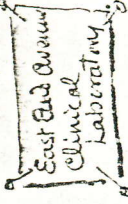 East End Avenue
Clinical
Laboratory